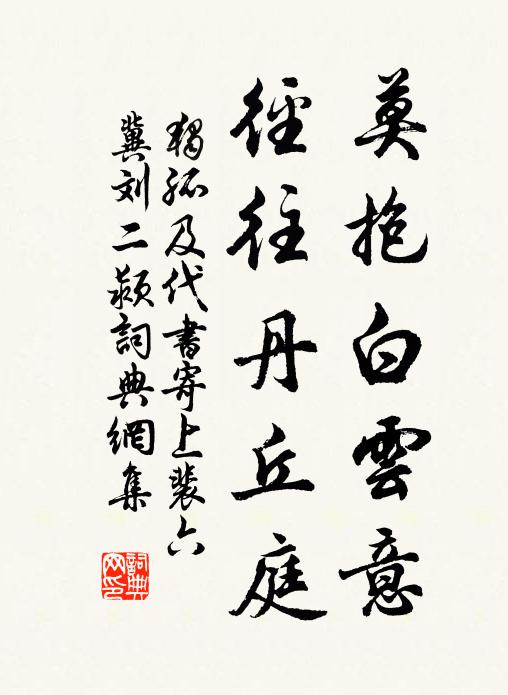 莫抱白雲意
徑往丹丘庭
獨孤及代書寄上裴六
冀刘二颍詞典網集
詞典
网印